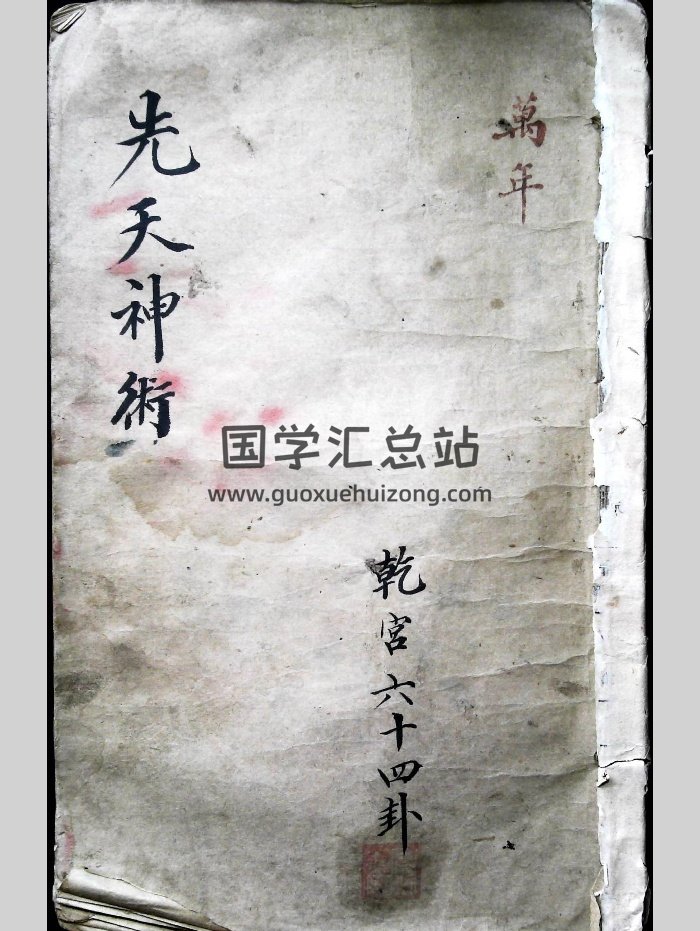 萬年
乾宮六十四卦
先天神術
国学汇总站
www.guoxuehuizong.com